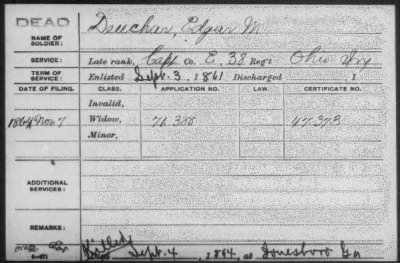 DEAD
NAME OF SOLDIER: Deuchar, Edgar M.
SERVICE: Late rank, Capt Co. E, 38 Reg't Ohio Inf
TERM OF SERVICE: Enlisted Sept. 3, 1861 Discharged , 1
DATE OF FILING. CLASS. APPLICATION NO. LAW. CERTIFICATE NO.
Invalid,
1864 Nov 7 Widow, 76.388 47.373
Minor,
ADDITIONAL SERVICES:
REMARKS: Killed
Sept. 4, 1864, at Jonesboro Ga